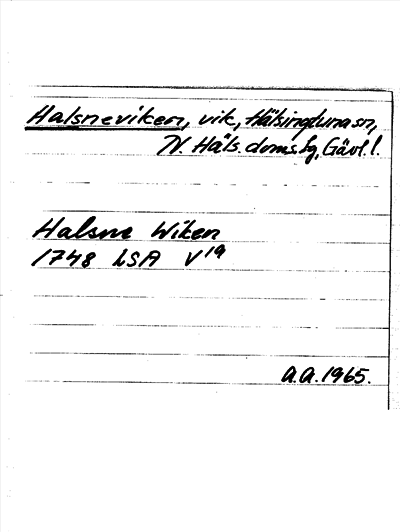 Halsneviken, vik, Hälsingtuna sn,
N. Häls. doms.bg, Gävl. l.
Halsne Wiken
1748 LSA V19
A.A. 1965.